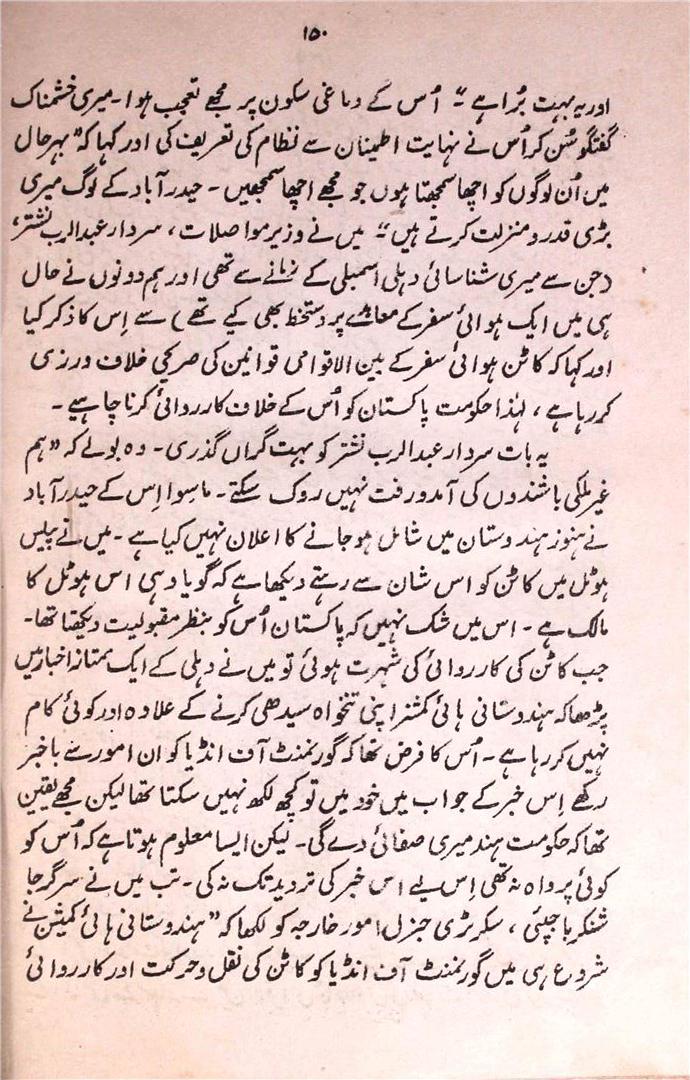 ۱۵۰
اور یہ بہت بُرا ہے ۔" اُس کے دماغی سکون پر مجھے تعجب ہوا ۔ میری خشمناک
گفتگو سُن کر اُس نے نہایت اطمینان سے نظام کی تعریف کی اور کہا کہ " بہرحال
میں اُن لوگوں کو اچھا سمجھتا ہوں جو مجھے اچھا سمجھیں ۔ حیدرآباد کے لوگ میری
بڑی قدر و منزلت کرتے ہیں ۔" میں نے وزیر مواصلات ، سردار عبدالرب نشتر ،
(جن سے میری شناسائی دہلی اسمبلی کے زمانے سے تھی اور ہم دونوں نے حال
ہی میں ایک ہوائی سفر کے معاہدے پر دستخط بھی کیے تھے) سے اِس کا ذکر کیا
اور کہا کہ کاٹن ہوائی سفر کے بین الاقوامی قوانین کی صریحی خلاف ورزی
کر رہا ہے ، لہٰذا حکومت پاکستان کو اُس کے خلاف کارروائی کرنا چاہیے ۔
یہ بات سردار عبدالرب نشتر کو بہت گراں گذری ۔ وہ بولے کہ " ہم
غیر ملکی باشندوں کی آمدورفت نہیں روک سکتے ۔ ماسوا اِس کے حیدرآباد
نے ہنوز ہندوستان میں شامل ہو جانے کا اعلان نہیں کیا ہے ۔ میں نے پیلیس
ہوٹل میں کاٹن کو اس شان سے رہتے دیکھا ہے کہ گویا وہی اس ہوٹل کا
مالک ہے ۔ اس میں شک نہیں کہ پاکستان اُس کو بنظر مقبولیت دیکھتا تھا ۔
جب کاٹن کی کارروائی کی شہرت ہوئی تو میں نے دہلی کے ایک ممتاز اخبار میں
پڑھا کہ ہندوستانی ہائی کمشنر اپنی تنخواہ سیدھی کرنے کے علاوہ اور کوئی کام
نہیں کر رہا ہے ۔ اُس کا فرض تھا کہ گورنمنٹ آف انڈیا کو ان امور سے باخبر
رکھے اِس خبر کے جواب میں خود میں تو کچھ لکھ نہیں سکتا تھا لیکن مجھے یقین
تھا کہ حکومت ہند میری صفائی دے گی ۔ لیکن ایسا معلوم ہوتا ہے کہ اُس کو
کوئی پرواہ نہ تھی اِس لیے اس خبر کی تردید تک نہ کی ۔ تب میں نے سر گرجا
شنکر باجپئی ، سکریٹری جنرل امور خارجہ کو لکھا کہ " ہندوستانی ہائی کمیشن نے
شروع ہی میں گورنمنٹ آف انڈیا کو کاٹن کی نقل و حرکت اور کارروائی